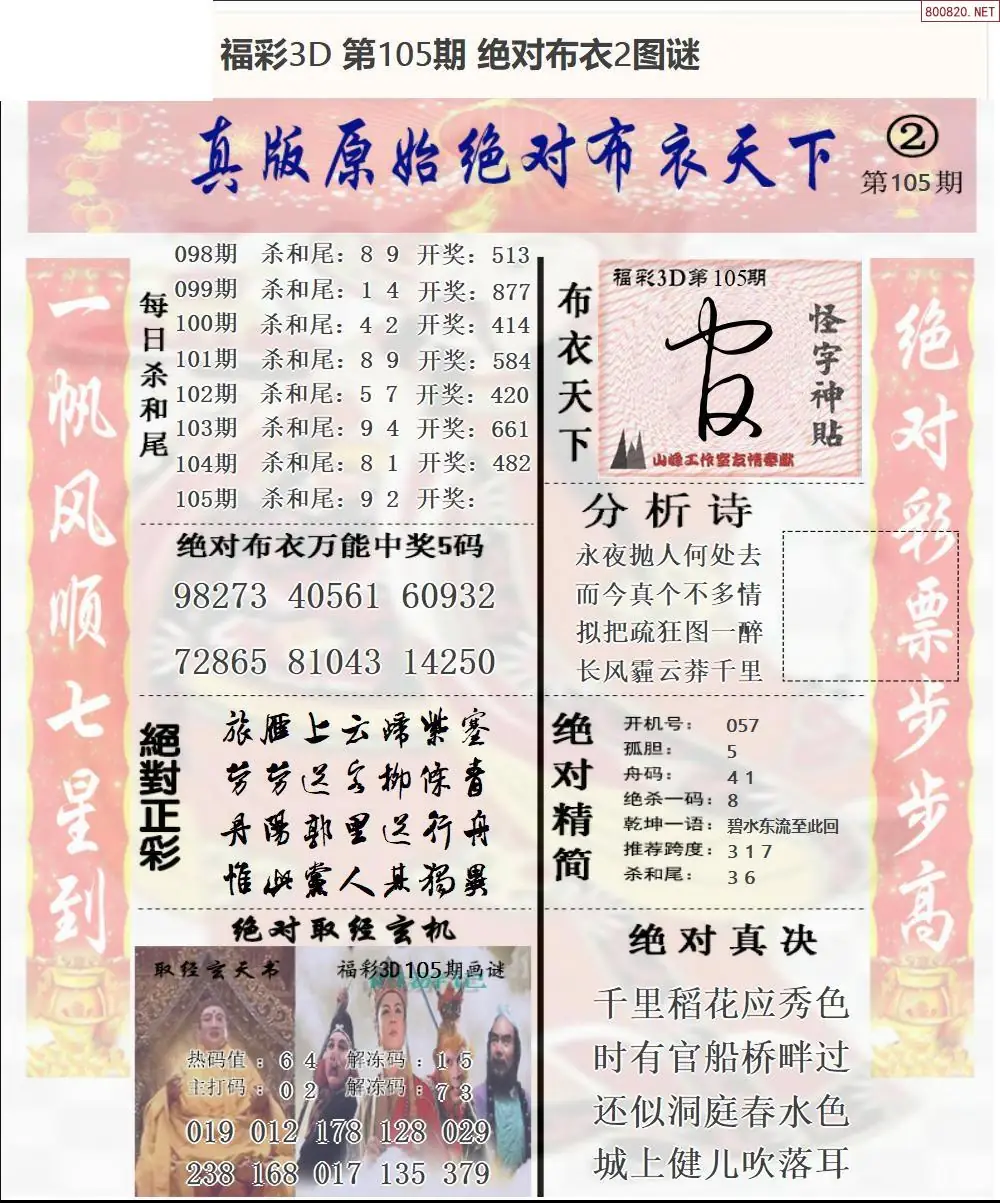 800820.NET
福彩3D 第105期 绝对布衣2图谜
真版原始绝对布衣天下
②
第105期
一帆风顺七星到
每日杀和尾
098期 杀和尾：8 9 开奖：513
099期 杀和尾：1 4 开奖：877
100期 杀和尾：4 2 开奖：414
101期 杀和尾：8 9 开奖：584
102期 杀和尾：5 7 开奖：420
103期 杀和尾：9 4 开奖：661
104期 杀和尾：8 1 开奖：482
105期 杀和尾：9 2 开奖：
绝对布衣万能中奖5码
98273 40561 60932
72865 81043 14250
絕對正彩
旅雁上云歸紫塞
劳劳送客柳條青
丹陽郭里送行舟
惟此黨人其獨異
绝对取经玄机
取经玄天书
福彩3D105期画谜
热码值：6 4 解冻码：1 5
主打码：0 2 解冻码：7 3
019 012 178 128 029
238 168 017 135 379
布衣天下
福彩3D第105期
怪字神貼
山峰工作室友情奉献
分析诗
永夜抛人何处去
而今真个不多情
拟把疏狂图一醉
长风霾云莽千里
绝对精简
开机号： 057
孤胆： 5
舟码： 4 1
绝杀一码：8
乾坤一语：碧水东流至此回
推荐跨度：3 1 7
杀和尾： 3 6
绝对真决
千里稻花应秀色
时有官船桥畔过
还似洞庭春水色
城上健儿吹落耳
绝对彩票步步高